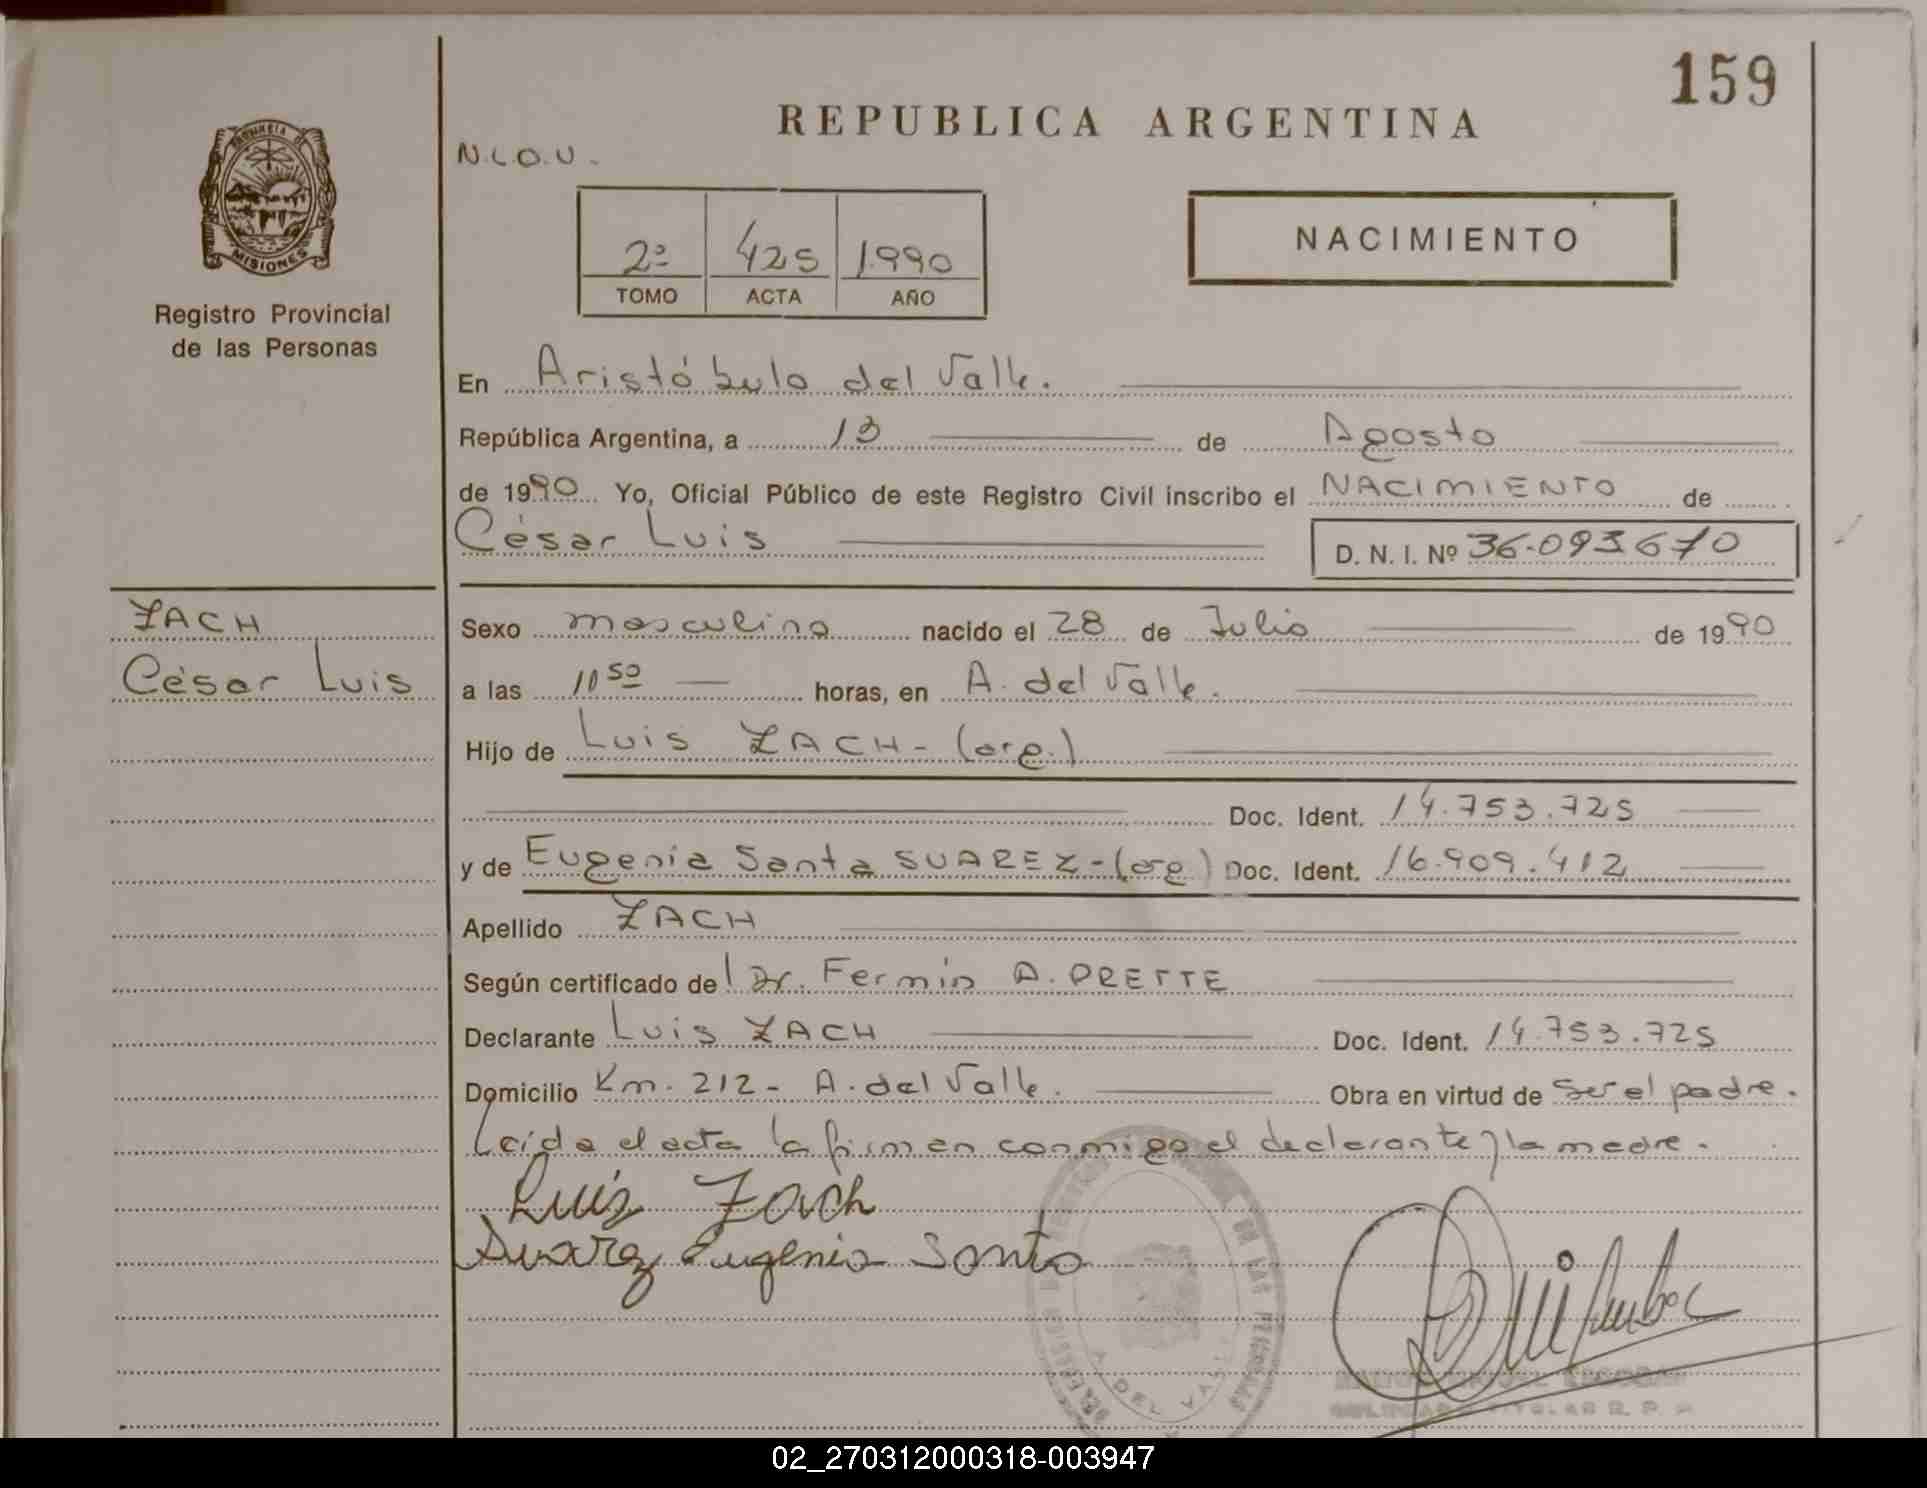 159
REPUBLICA ARGENTINA
N.L.O.U.
2º 425 1.990
TOMO ACTA AÑO
NACIMIENTO
MISIONES
Registro Provincial
de las Personas
En Aristóbulo del Valle.
República Argentina, a 13 de Agosto
de 1990 Yo, Oficial Público de este Registro Civil inscribo el NACIMIENTO de
César Luis D. N. I. Nº 36.093670
ZACH
César Luis
Sexo masculino nacido el 28 de Julio de 1990
a las 11 50 horas, en A. del Valle.
Hijo de Luis ZACH - (arg.)
Doc. Ident. 14.753.725
y de Eugenia Santa SUAREZ - (arg) Doc. Ident. 16.909.412
Apellido ZACH
Según certificado del Dr. Fermín A. PRETTE
Declarante Luis ZACH Doc. Ident. 14.753.725
Domicilio Km. 212 - A. del Valle. Obra en virtud de ser el padre.
Leída el acta la firman conmigo el declarante y la madre.
Luis Zach
Suarez Eugenia Santa
DE LAS PERSONAS
A. DEL VALLE
02_270312000318-003947